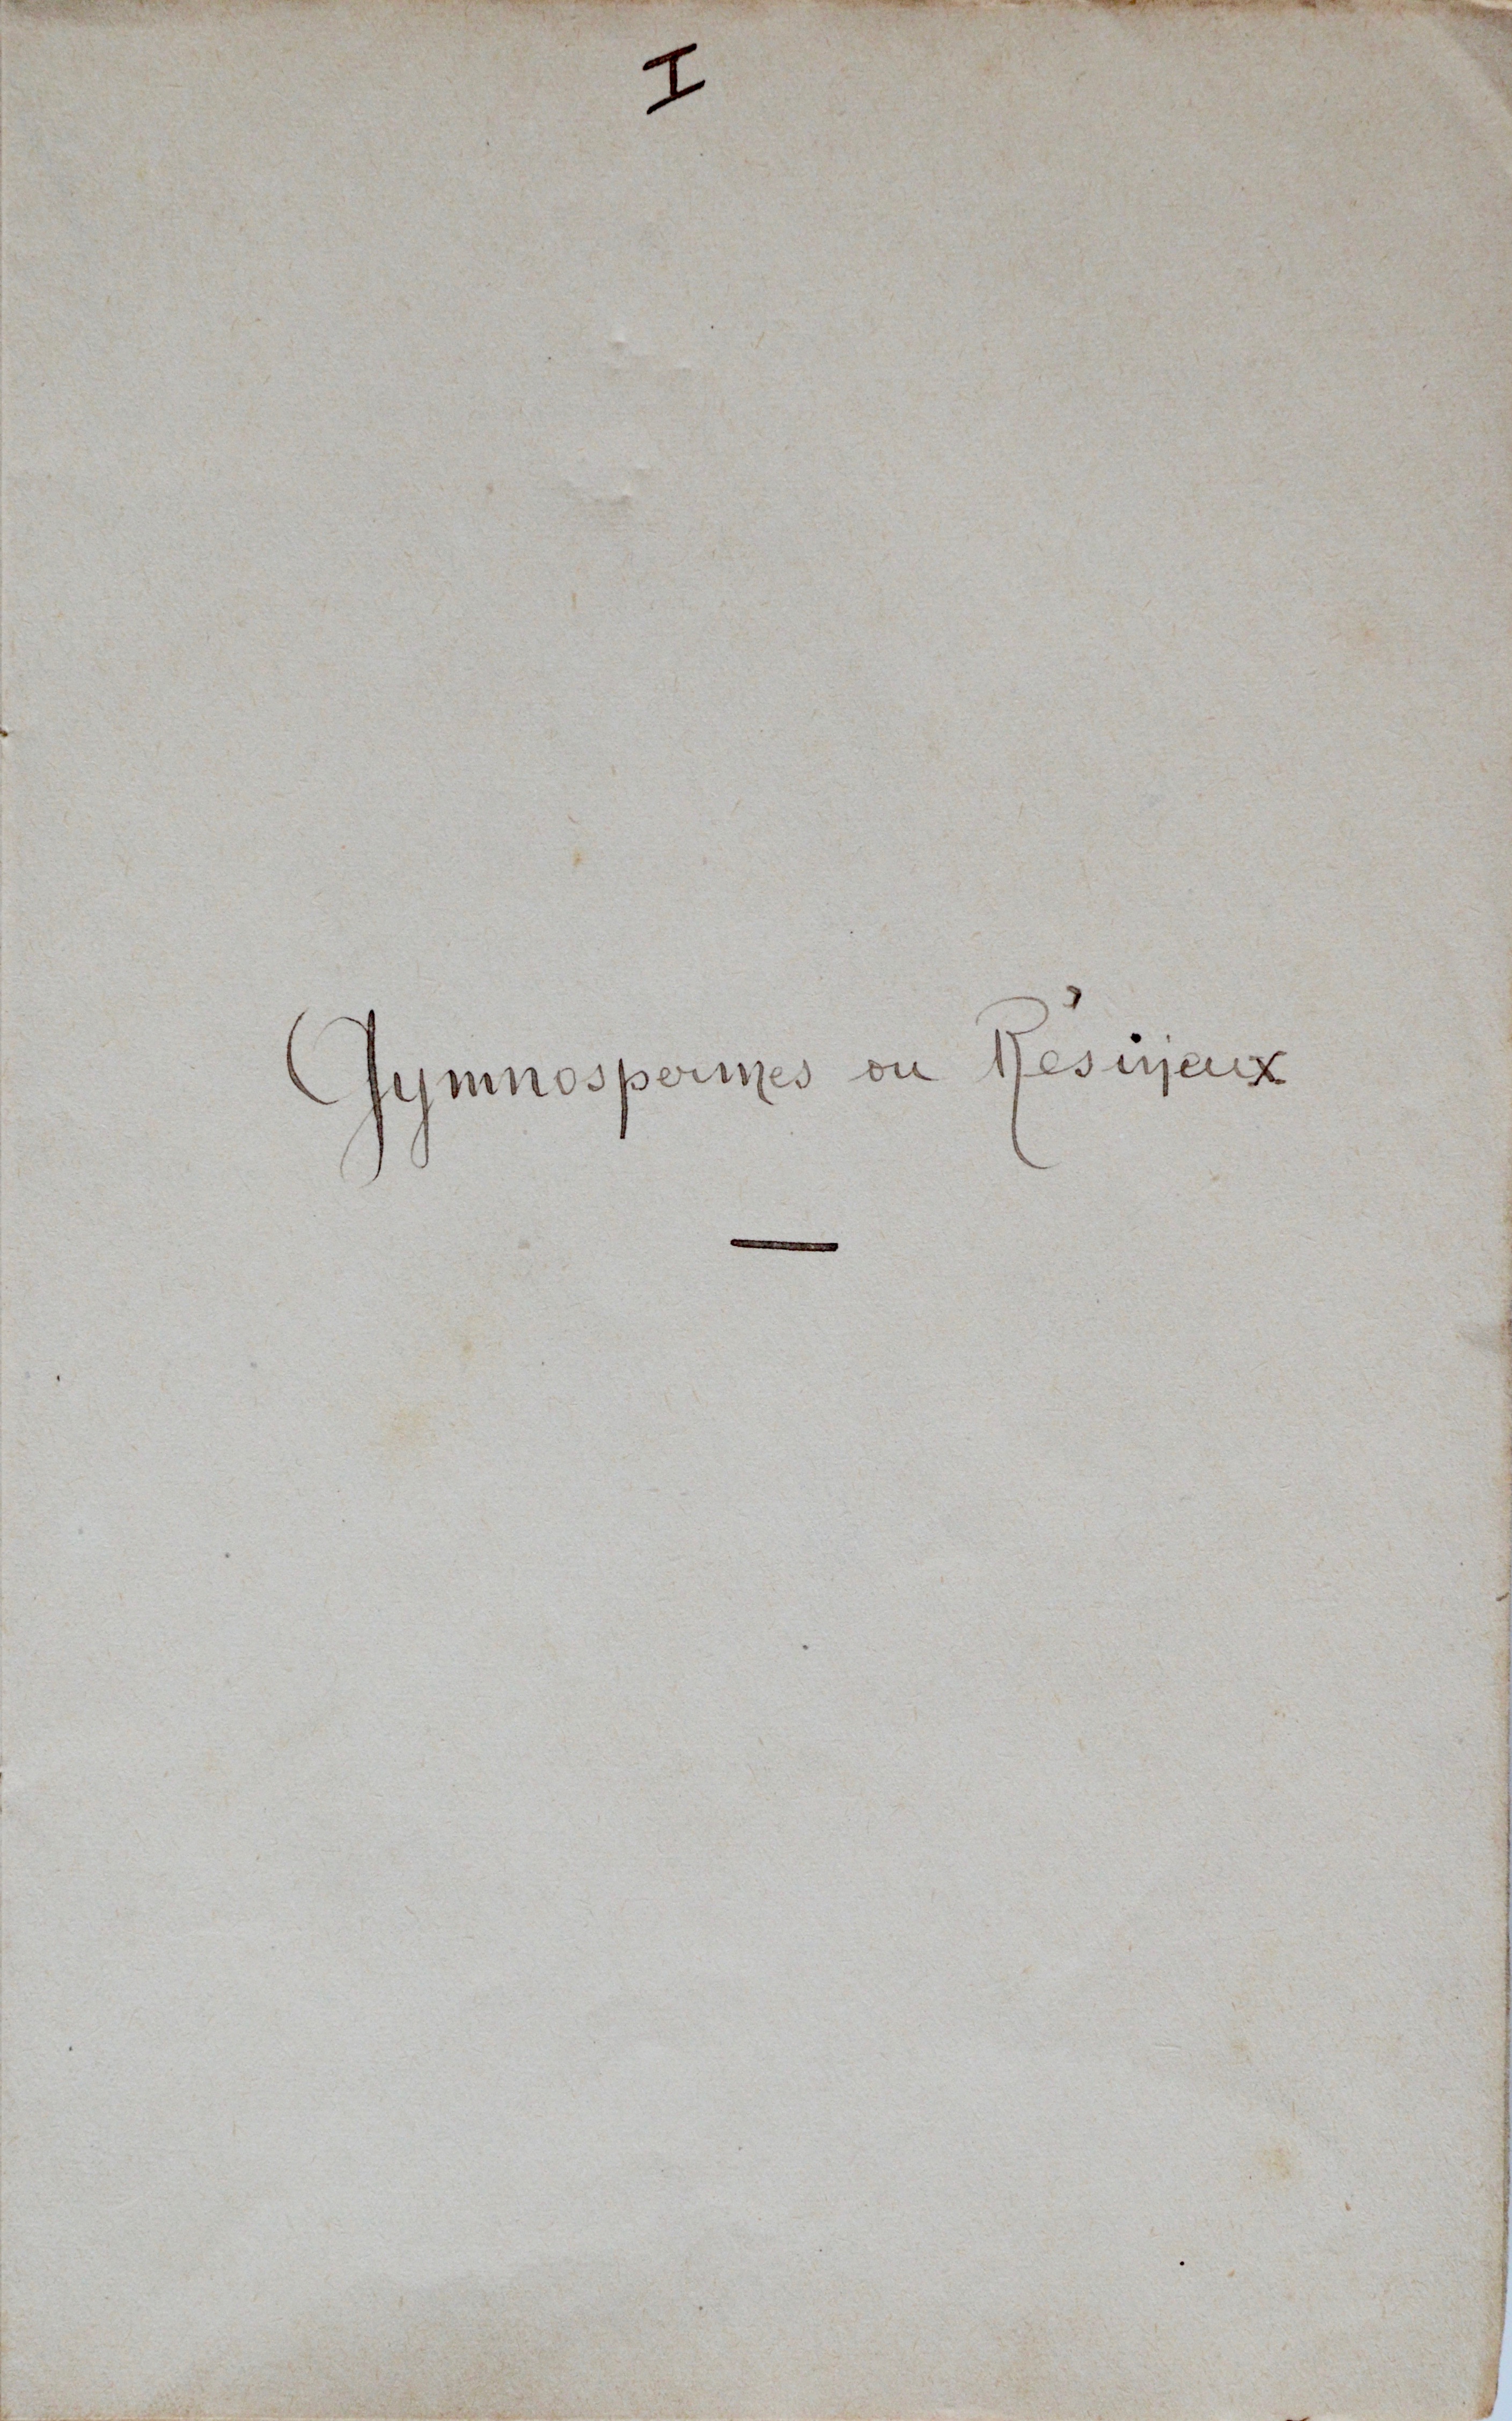 I
Gymnospermes ou Résineux